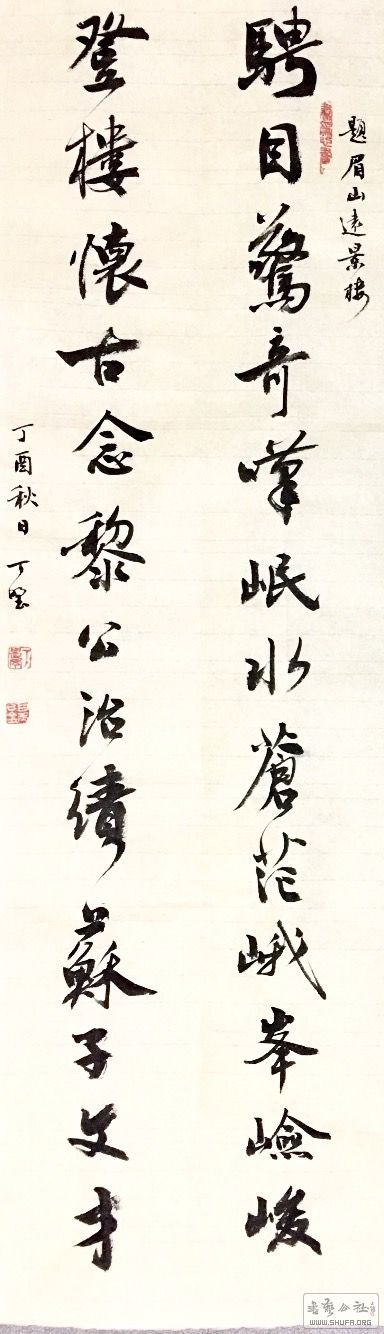 題眉山遠景樓
騁目驚奇嘆岷水蒼茫峨峯嶮峻
登樓懷古念黎公治績蘇子文才
丁酉秋日丁
書藝公社
WWW.SHUFA.ORG